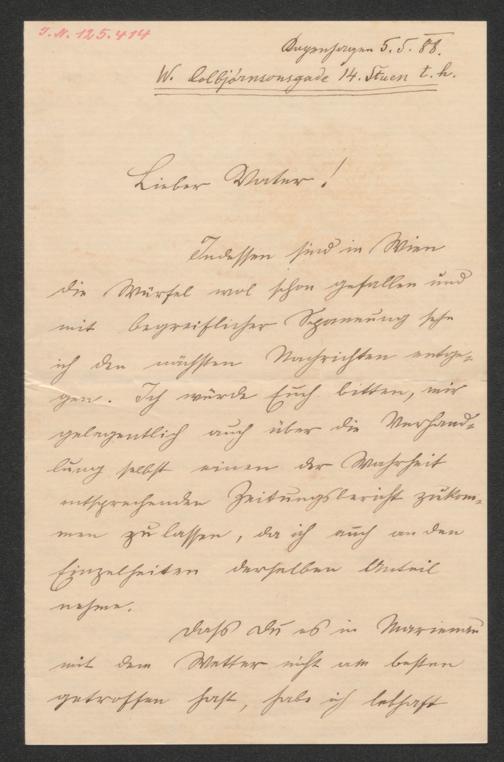 J.N. 125.414
Kopenhagen 5.5.88.
W. Colbjørnsensgade 14. Stuen t. h.
Lieber Vater!
Indessen sind in Wien
die Würfel wol schon gefallen und
mit begreiflicher Spannung sehe
ich den nächsten Nachrichten entge-
gen. Ich würde Euch bitten, mir
gelegentlich auch über die Verhand-
lung selbst einen der Wahrheit
entsprechenden Zeitungsbericht zukom-
men zu lassen, da ich auch an den
Einzelheiten derselben Anteil
nehme.
Dass Du es in
mit dem Wetter nicht am besten
getroffen hast, habe ich lebhaft